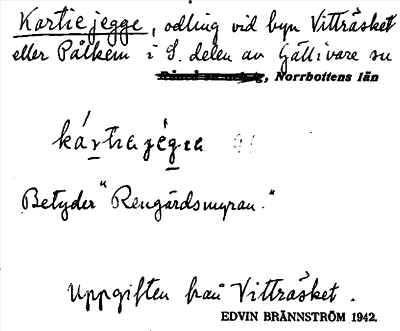 Kartiejegge, odling vid byn Vitträsket
eller Pålkem i S. delen av Gällivare sn
, Norrbottens län
kártrajégra
Betyder "Rengårdsmyran."
Uppgiften från Vitträsket.
EDVIN BRÄNNSTRÖM 1942.